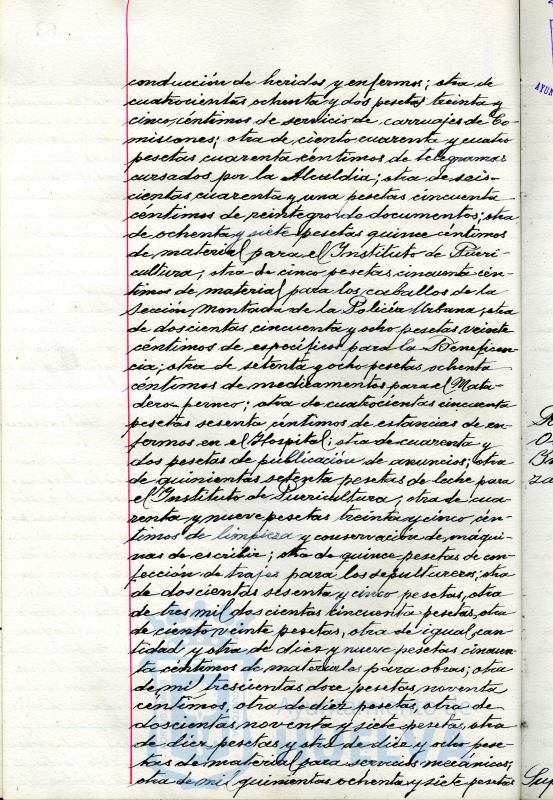 conducción de heridos y enfermos; otra de
cuatrocientas ochenta y dos pesetas treinta y
cinco céntimos de servicio de carruajes de Co-
misiones; otra de ciento cuarenta y cuatro
pesetas cuarenta céntimos de telegramas
cursados por la Alcaldia; otra de seis-
cientas cuarenta y una pesetas cincuenta
céntimos de reintegro de documentos; otra
de ochenta y siete pesetas quince céntimos
de material para el Instituto de Pueri-
cultura; otra de cinco pesetas cincuenta cén-
timos de material para los caballos de la
Sección Montada de la Policia Urbana; otra
de doscientas cincuenta y ocho pesetas veinte
céntimos de específicos para la Beneficen-
cia; otra de setenta y ocho pesetas ochenta
céntimos de medicamentos para el Mata-
dero-perneo; otra de cuatrocientas cincuenta
pesetas sesenta céntimos de estancias de en-
fermos en el Hospital; otra de cuarenta y
dos pesetas de publicación de anuncios; otra
de quinientas setenta pesetas de leche para
el Instituto de Puericultura; otra de cua-
renta y nueve pesetas treinta y cinco cén-
timos de limpieza y conservación de máqui-
nas de escribir; otra de quince pesetas de con-
fección de trajes para los sepultureros; otra
de doscientas sesenta y cinco pesetas, otra
de tres mil doscientas cincuenta pesetas, otra
de ciento veinte pesetas, otra de igual can-
tidad y otra de diez y nueve pesetas cincuen-
ta céntimos de materiales para obras; otra
de mil trescientas doce pesetas noventa
céntimos, otra de diez pesetas, otra de
doscientas noventa y siete pesetas, otra
de diez pesetas y otra de diez y ocho pese-
tas de material para servicios mecánicos;
otra de mil quinientas ochenta y siete pesetas
HUELVA